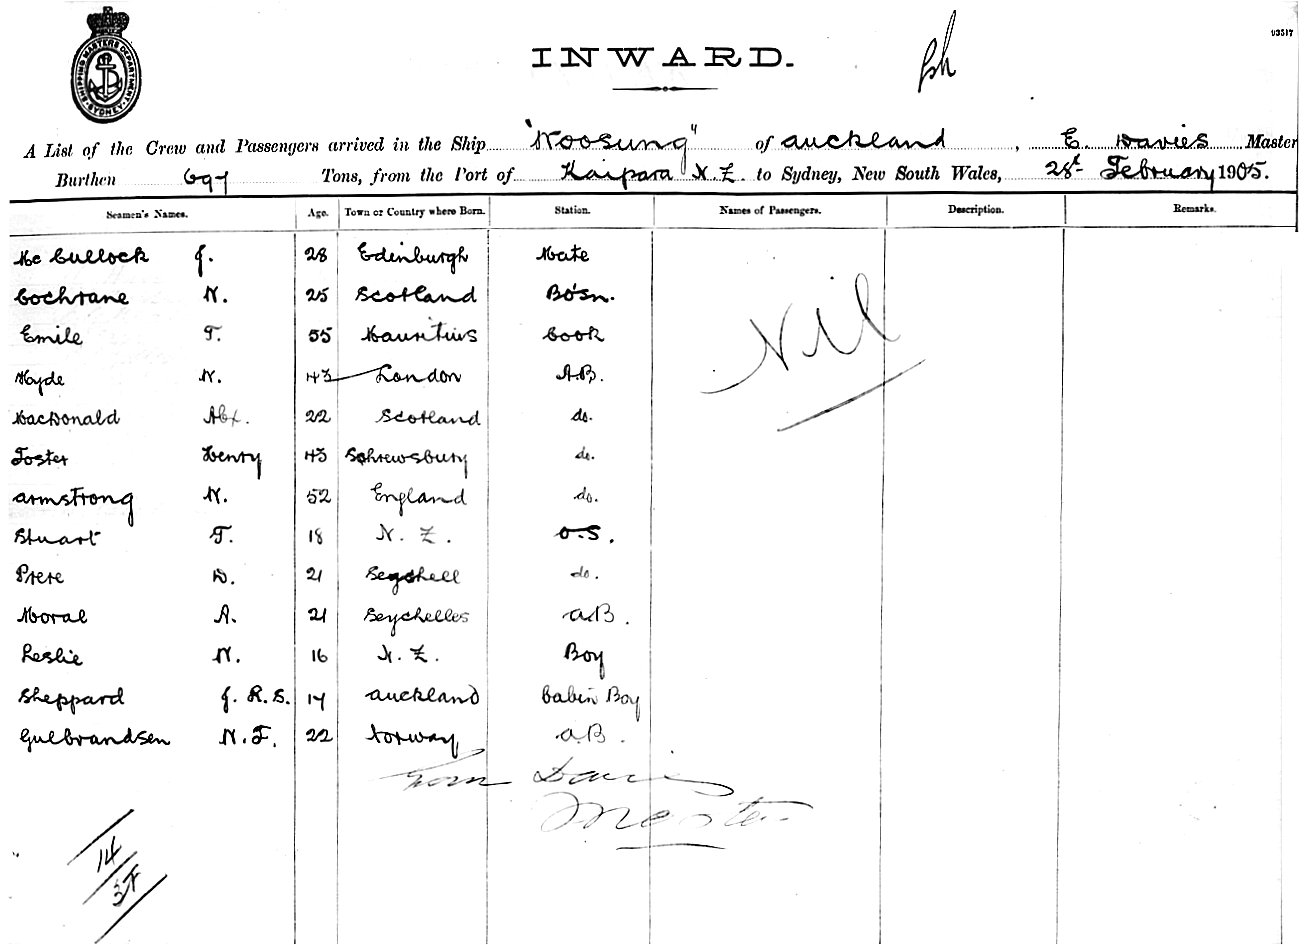 SHIPPING MASTERS DEPARTMENT SYDNEY
INWARD.
93517
A List of the Crew and Passengers arrived in the Ship "Woosung" of Auckland, E. Davies Master
Burthen 697 Tons, from the Port of Kaipara N.Z. to Sydney, New South Wales, 28th February 1905.
Seamen's Names. Age. Town or Country where Born. Station. Names of Passengers. Description. Remarks.
McCullock J. 28 Edinburgh Mate
Cochrane W. 25 Scotland Bo'sn.
Nil
Emile F. 55 Mauritius Cook
Hyde W. 43 London A.B.
MacDonald Alx. 22 Scotland do.
Foster Henry 43 Schrewsbury do.
Armstrong W. 52 England do.
Stuart F. 18 N.Z. O.S.
Prere D. 21 do.
Moral A. 21 Seychelles A.B.
Leslie W. 16 N.Z. Boy
Sheppard J.R.S. 17 Auckland Cabin Boy
Gulbrandsen N.F. 22 Norway A.B.
Davies
Master
14
3F